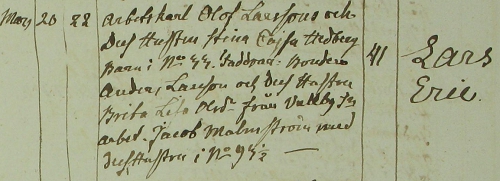 Mars 20 22 Arbetskarl Olof Larssons och
Dess Hustru Stina Cajsa Hedberg
Barn i No Faddrar: Bonden
Anders Larsson och dess Hustru 41 Lars
Brita Lisa Olsdr från Vallby Eric.
arbet. Jacob Malmström med
dess Hustru i No